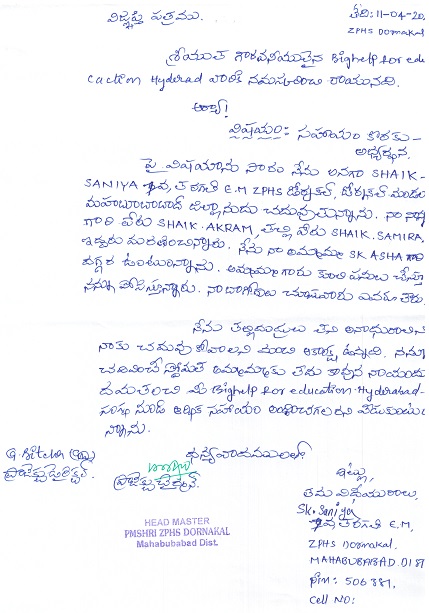 విజ్ఞప్తి పత్రము.
తేది: 11-04-20
ZPHS DORNAKAL
శ్రీయుత గౌరవనీయులైన Bighelp for edu
caction Hyderad వారికి నమస్కరించి రాయునది.
ఆర్యా!
విషయం: సహాయం కొరకు -
అభ్యర్థన.
పై విషయాను సారం నేను అనగా SHAIK-
SANIYA 9వ తరగతి E.M ZPHS డోర్నకల్, డోర్నకల్ మండలం
మహబూబాబాద్ జిల్లా నందు చదువుతున్నాను. మా నాన్న
గారి పేరు SHAIK. AKRAM, తల్లి పేరు SHAIK. SAMIRA,
ఇద్దరు మరణించినారు. నేను మా అమ్మమ్మ SK ASHA గారి
దగ్గర ఉంటున్నాను. అమ్మమ్మ గారు కూలి పనులు చేస్తూ
నన్ను పోషిస్తున్నారు. నా బాగోగులు చూసేవారు ఎవరూ లేరు.
నేను తల్లిదండ్రులు లేని అనాధురాలిని
నాకు చదువు కోవాలని మంచి ఆకాంక్ష ఉన్నది. నన్ను
చదివించే స్తోమత అమ్మమ్మకు లేదు కావున నాయందు
దయతలచి మీ Bighelp for education Hyderabad-
సంస్థ నుండి ఆర్థిక సహాయం అందించగలరని వేడుకుంటు
న్నాను.
ధన్యవాదములతో
ప్రాజెక్టు డైరెక్టర్.
ప్రాజెక్టు చైర్మన్.
HEAD MASTER
PMSHRI ZPHS DORNAKAL
Mahabubabad Dist.
ఇట్లు,
తమ విధేయురాలు,
SK. Saniya
9వ తరగతి E.M,
ZPHS Dornakal.
MAHABUBABAD DIST
Pin: 506381.
Cell NO: